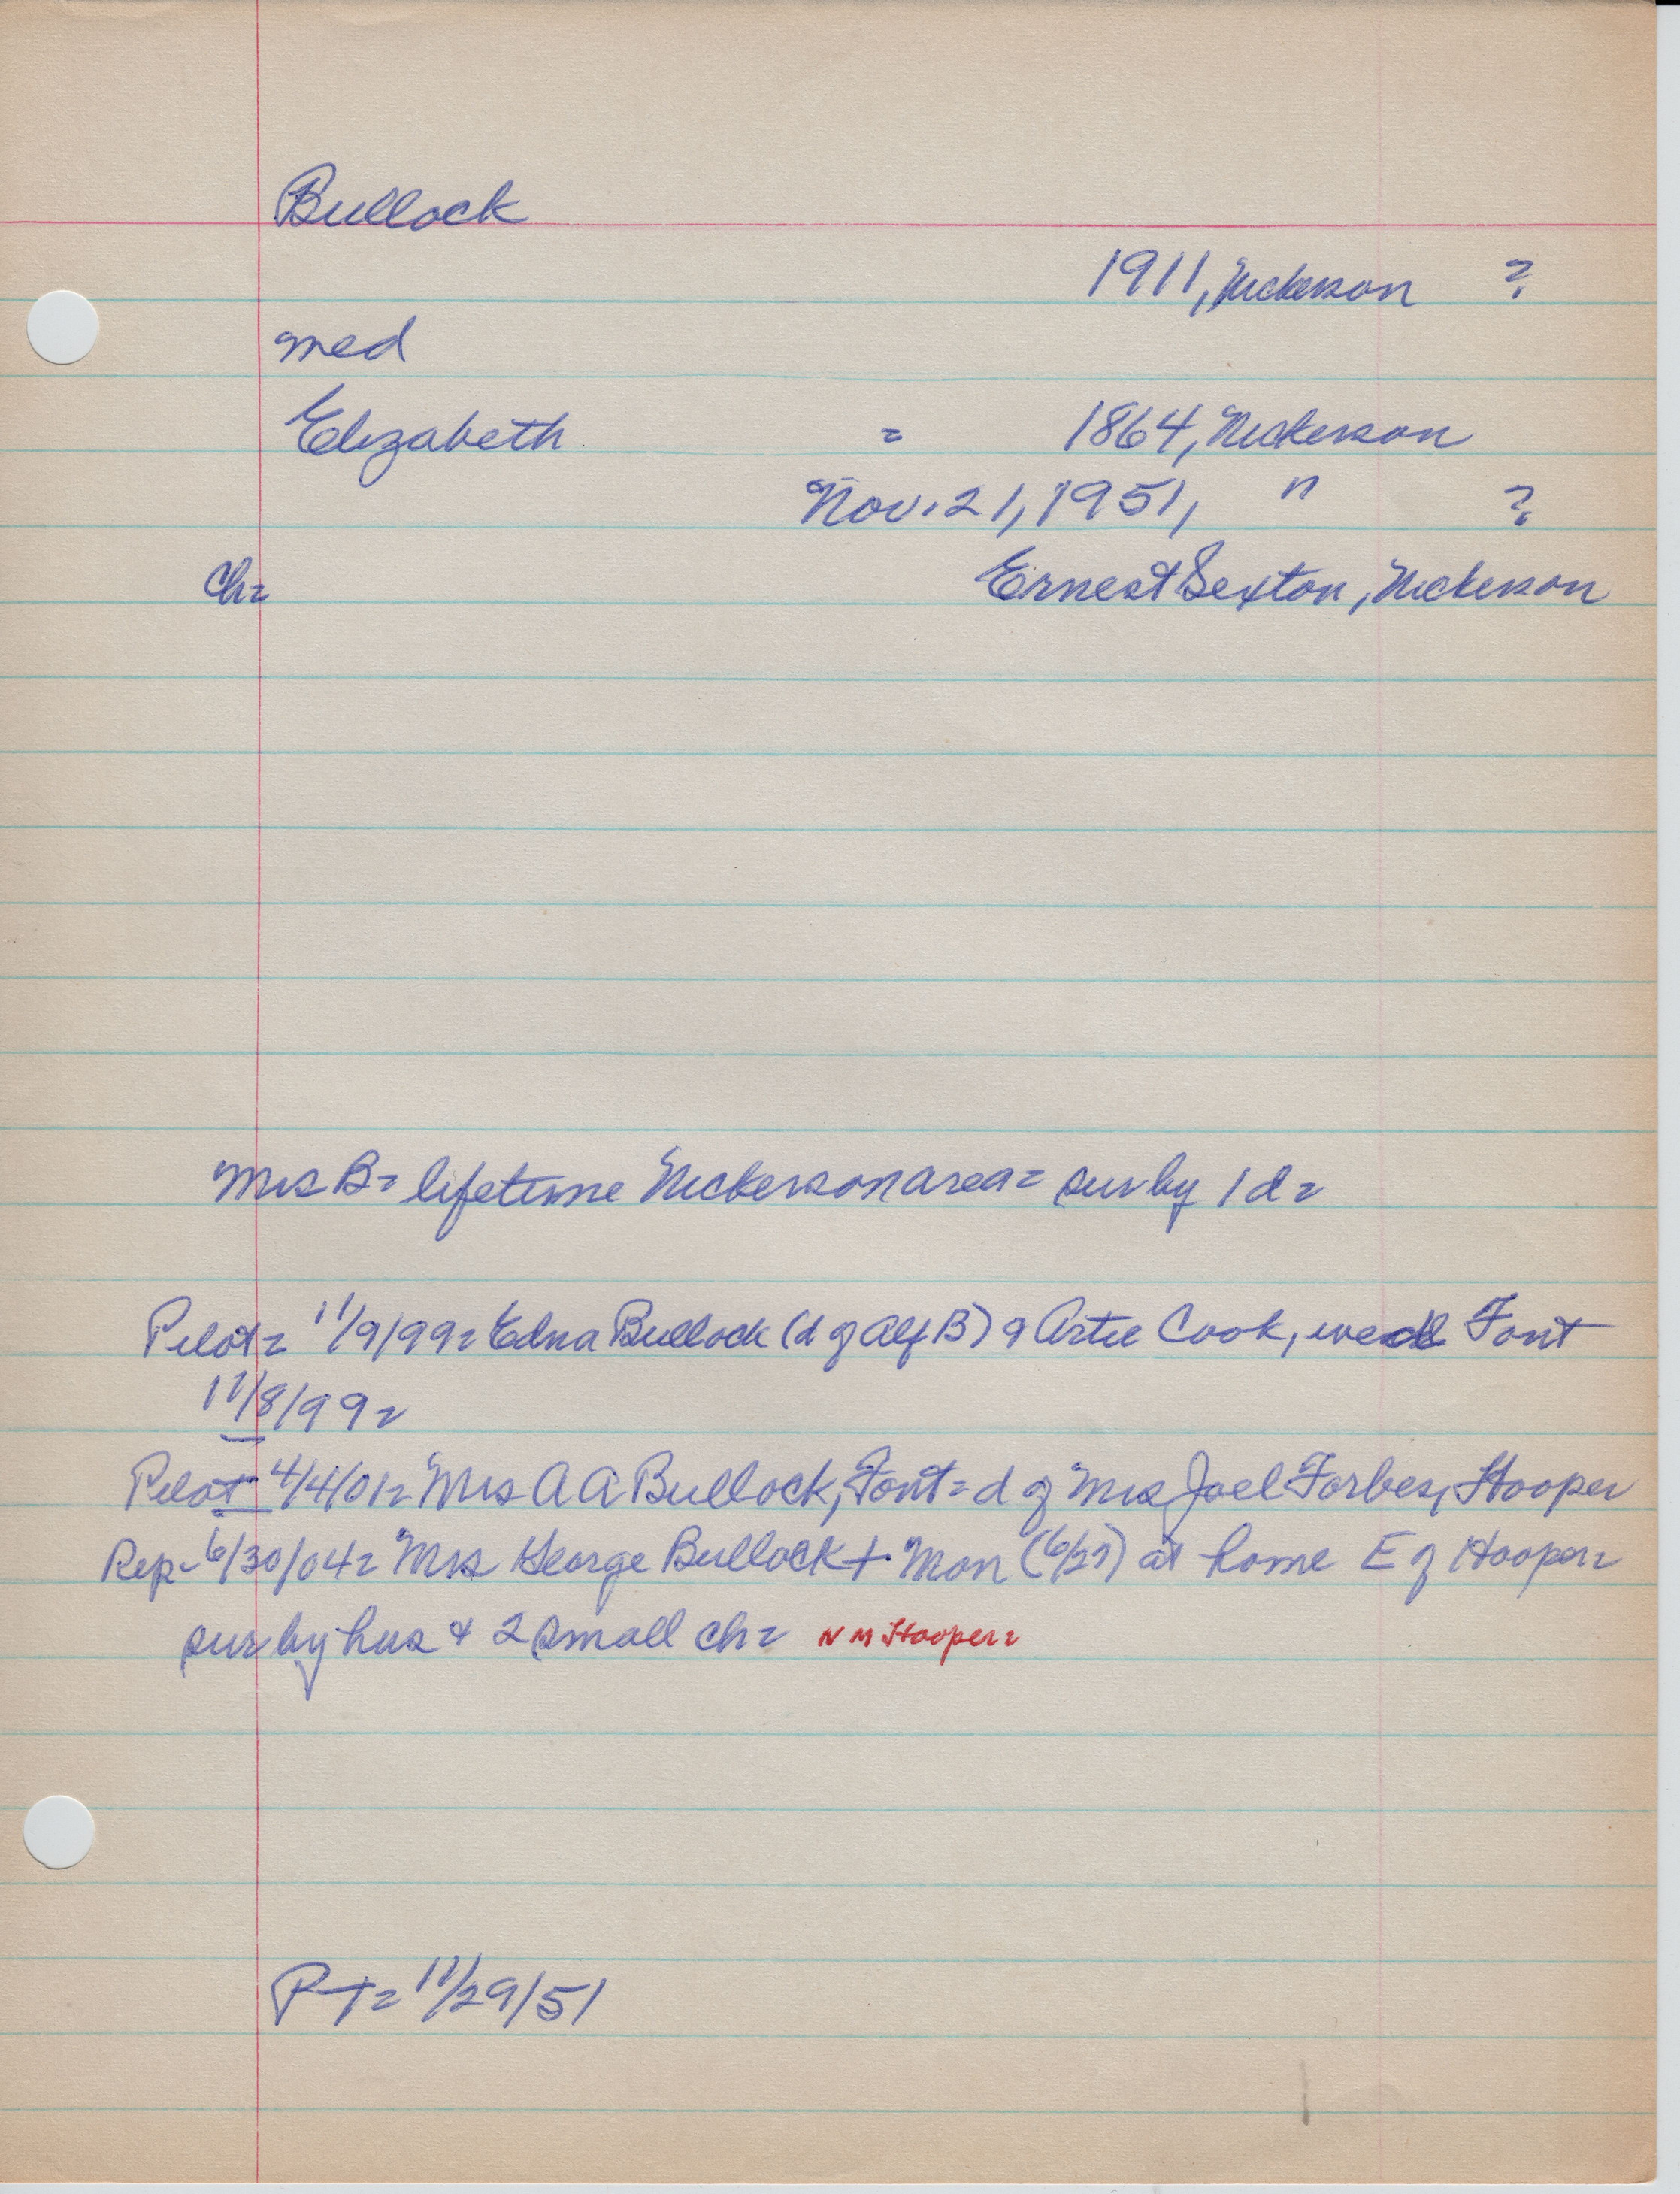 Bullock
1911, Nickerson ?
med
Elizabeth = 1864, Nickerson
Nov. 21, 1951, " ?
Ch= Ernest Sexton, Nickerson
Mrs B= lifetime Nickerson area= sur by 1 d=
Pilot= 11/9/99= Edna Bullock (d of Alf B) & Artie Cook, wed Font
11/8/99=
Pilot 4/4/01= Mrs A A Bullock, Font= d of Mrs Joel Forbes, Hooper
Rep- 6/30/04= Mrs George Bullock + Mon (6/27) at home E of Hooper=
sur by hus & 2 small ch= N M Hooper=
PT= 11/29/51